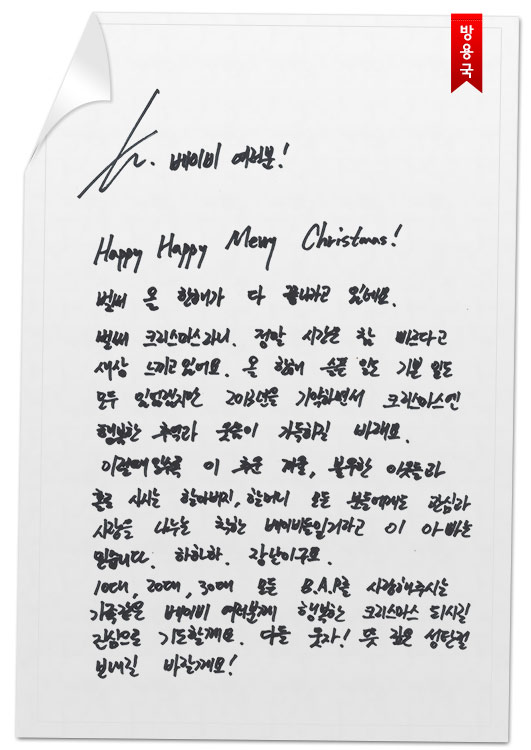 방용국
베이비 여러분!
Happy Happy Merry Christmas!
벌써 온 한해가 다 끝나가고 있네요.
벌써 크리스마스라니. 정말 시간은 참 빠르다고
새삼 느끼고 있어요. 올 한해 슬픈 일도 기쁜 일도
모두 있었겠지만 2013년을 기억하면서 크리스마스엔
행복한 추억과 웃음이 가득하길 바래요.
이럴때 일수록 이 추운 겨울, 불우한 이웃들과
혼로 사시는 할아버지, 할머니 모든 분들에게도 관심과
사랑을 나누는 착한 베이비들일거라고 이 아빠는
믿습니다. 하하하. 장난이구요.
10대, 20대, 30대 모든 B.A.P를 사랑해주시는
가족같은 베이비 여러분께 행복한 크리스마스 되시길
진심으로 기도할께요. 다들 웃자! 뜻 깊은 성탄절
보내길 바랄께요!